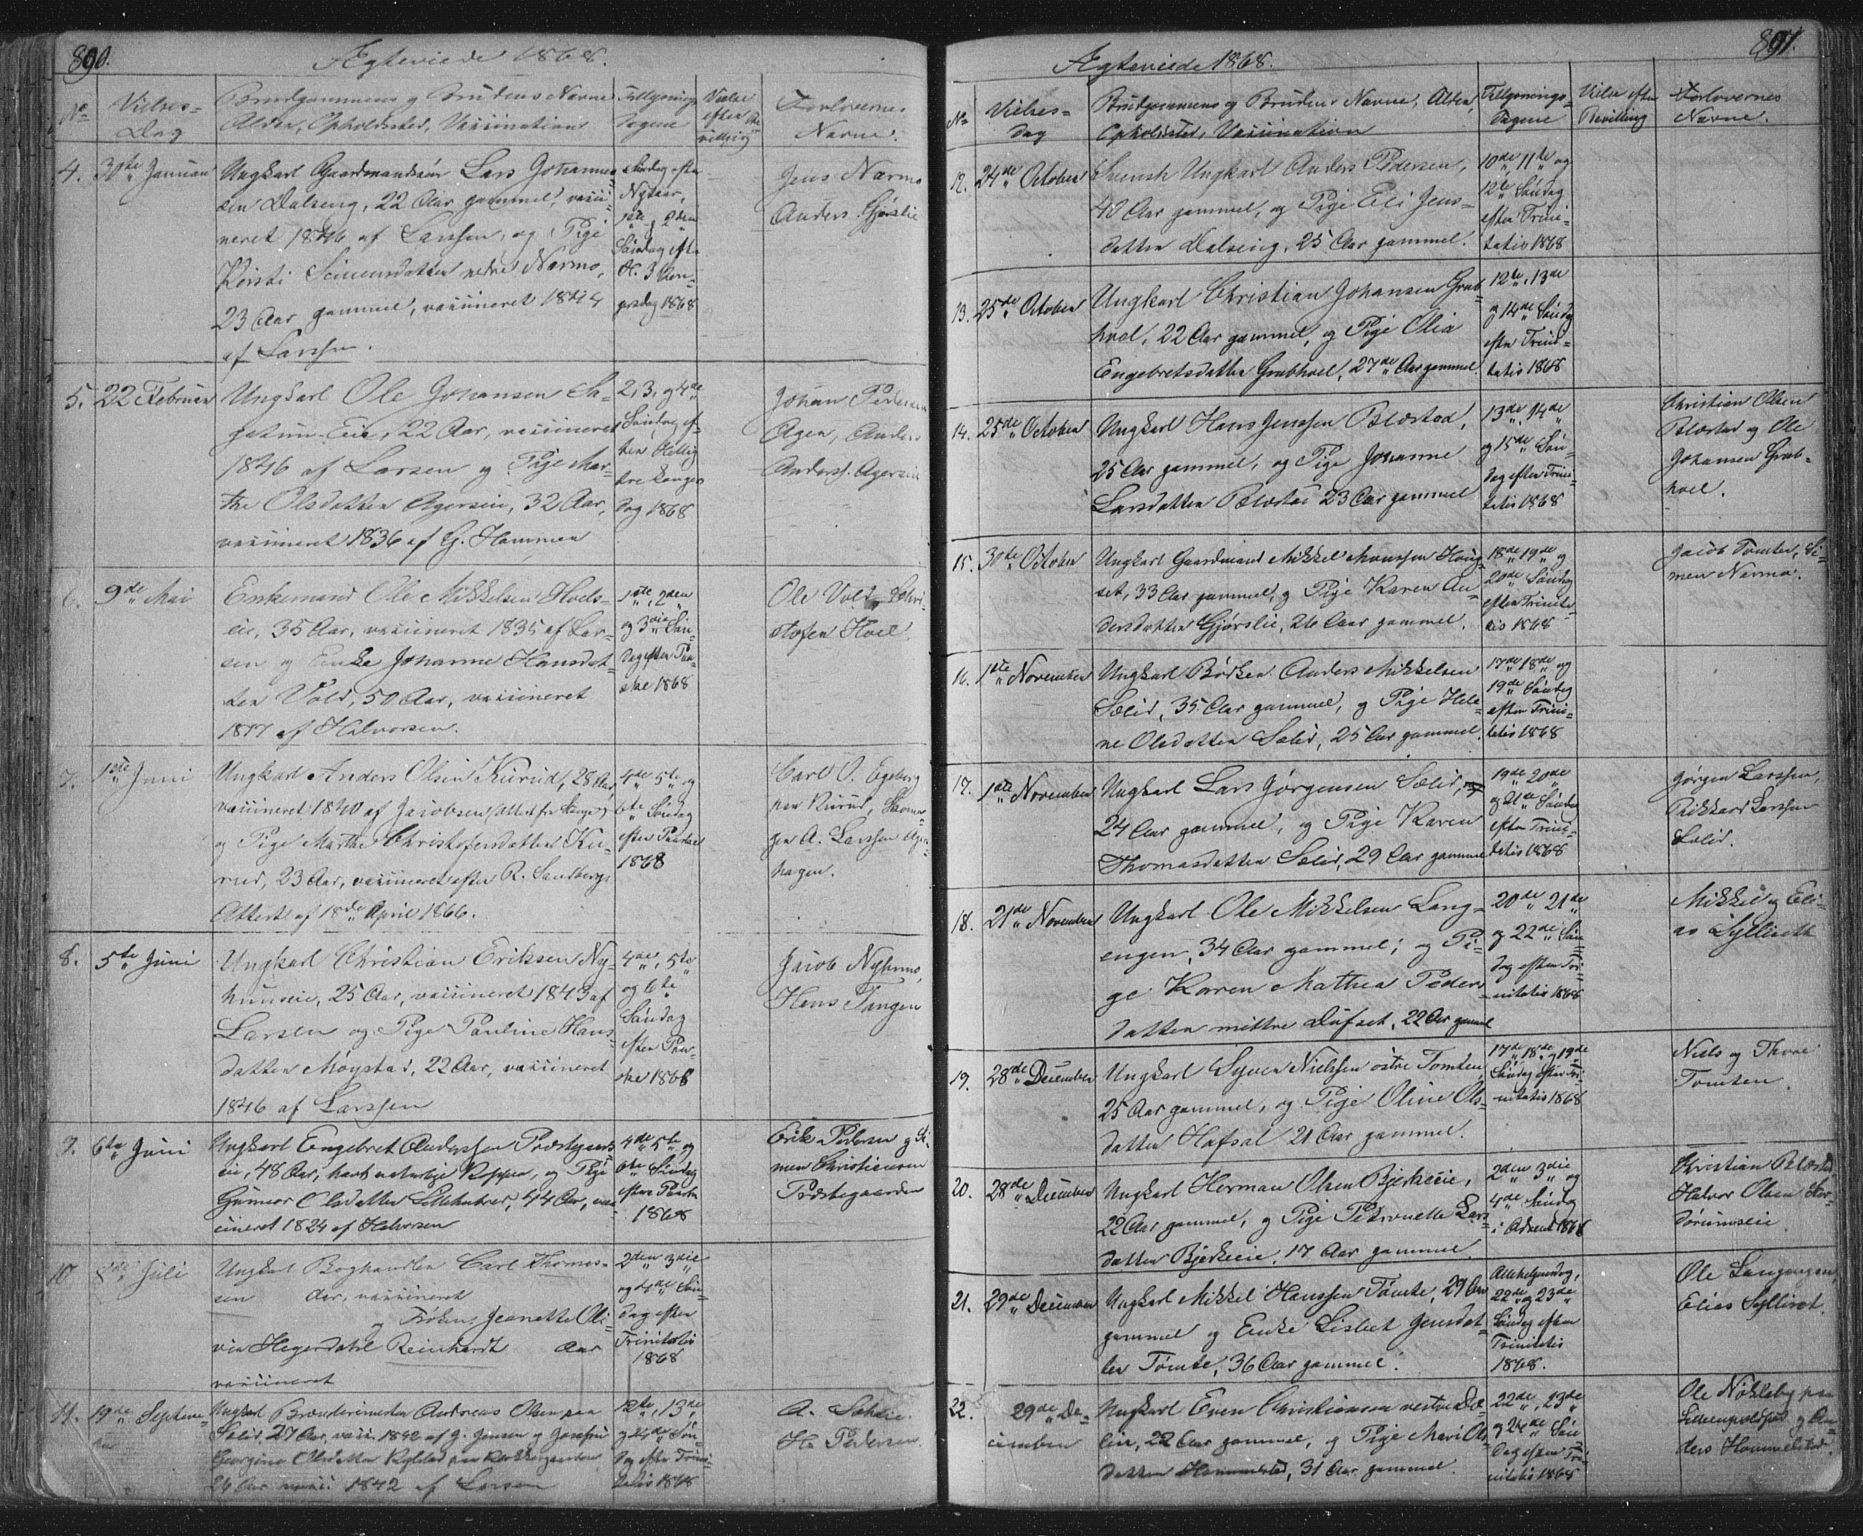 890.
Ægteviede 1868.
No
Vielses-
Dag
Brudgommens og Brudens Navne
Alder, Opholdsted, Vaccination
Tillysnings
Dagene
Vielse
efter Be
villing
Forlovernes
Navne.
4.
30te Januar
Ungkarl Gaardmandssøn Lars Johannes
sen Dalseng, 22 Aar gammel, vacci-
neret 1846 af Larssen, og Pige
Kersti Simensdatter nedre Narmo,
23 Aar gammel, vaccineret 1844
af Larssen.
Søndag efter
Nytaar,
1ste og 2den
Søndag efter
H. 3 Kon-
gersdag 1868
Jens Narmo
Anders Gjørslie
5.
22 Februar
Ungkarl Ole Johansen
Eie, 22 Aar, vaccineret
1846 af Larsen og Pige Mar-
the Olsdatter Agerseie, 32 Aar,
vaccineret 1836 af G. Hammer
2, 3, og 4de
Søndag ef-
ter Hellig
tre Konges
dag 1868
Johan Pedersen
Ager, Anders
Anders. Agerseie
6.
9de Mai
Enkemand Ole Mikkelsen Hoels-
eie, 35 Aar, vaccineret 1835 af Lar-
sen og Enke Johanne Hansdat-
ter Vold, 50 Aar, vaccineret
1817 af Halvorsen.
1ste, 2den
og 3die Søn-
dag efter Paa-
ske 1868
Ole Vold, Chri-
stofer Hoel.
7.
1ste Juni
Ungkarl Anders Olsen Kurud, 28 Aar,
vaccineret 1840 af Jacobsen, Attest fra Stange,
og Pige Marthe Christofersdatter Ku-
rud, 23 Aar, vaccineret efter R. Sandbergs
Attest af 18de April 1866.
4de 5te og
6te Søndag
efter Paaske
1868
Carl O. Egeberg
paa Kurud,
A. Larssen
hagen.
8.
5te Juni
Ungkarl Christian Eriksen Ny-
huuseie, 25 Aar, vaccineret 1843 af
Larsen og Pige Pauline Hans-
datter Møystad, 22 Aar, vaccineret
1846 af Larssen
4de, 5te
og 6te
Søndag
efter Paa-
ske 1868
Jacob Nyhuus,
Hans Tangen
9.
6te Juni
Ungkarl Engebret Anderssen Præstgaards
eie, 48 Aar, havt naturlige Kopper, og Pige
Gunnor Olsdatter Lillehubred, 44 Aar, vac-
cineret 1824 af Halvorsen
4de 5te og
6te Søndag
efter Paaske
1868
Erik Pedersen og Si-
men Christiansen
Præstegaarden
10
8de Juli
Ungkarl Boghandler Carl Thomes-
sen Aar, vaccineret
og Frøken Jeanette Oli-
via Hegerdahl Reinhardt Aar
vaccineret
2den 3die
og 4de Søn-
dag efter
Trinitatis
1868
11.
19de Septem-
ber
Ungkarl Brænderimester Andreas Olsen paa
Sælid, 27 Aar, vacc. 1842 af J. Jensen og Jomfru
Georgine Olsdatter
26 Aar vacci. 1842 af Larsen
12te, 13de
og 14de Søn-
dag efter Trini-
tatis 1868
A. Sælid.
H. Pedersen
891.
Ægteviede 1868.
No
Vielses-
dag
Brudgommens og Brudens Navne, Alder,
Opholdsted, Vaccination
Tillysnings-
Dagene
Vielse efter
Bevilling
Forlovernes
Navne.
12.
24de October
Svensk Ungkarl Anders Pedersen,
40 Aar gammel, og Pige Eli Jens-
datter Dalseng, 25 Aar gammel.
10de, 11te og
12te Søndag
efter Trini-
tatis 1868
13.
25de October
Ungkarl Christian Johansen Grøb-
hoel, 22 Aar gammel, og Pige Olia
Engebretsdatter Grøbhoel, 27de Aar gammel
12te, 13de
og 14de Søndag
efter Trini-
tatis 1868
14.
25de October
Ungkarl Hans Jenssen Blæstad,
25 Aar gammel, og Pige Johanne
Larsdatter Blæstad 23 Aar gammel
13de, 14de
og 15de Søn-
dag efter Trini-
tatis 1868
Christian Olsen
Blæstad og Ole
Johansen Grøb-
hoel.
15.
30de October
Ungkarl Gaardmand Mikkel Monssen Houg-
set, 33 Aar gammel, og Pige Karen An-
dersdatter Gjørslie, 26 Aar gammel.
18de 19de og
20de Søndag
efter Trinita-
tis 1868
Jacob Tomter, Si-
men Narmo.
16.
1ste November
Ungkarl Bødker Anders Mikkelsen
Sælid, 35 Aar gammel, og Pige Hele-
ne Olsdatter Sælid, 25 Aar gammel
17de 18de og
19de Søndag
efter Trini-
tatis 1868
17.
1ste November
Ungkarl Lars Jørgensen Sælid,
24 Aar gammel, og Pige Karen
Thomasdatter Sælid, 29 Aar gammel
19de 20de
og 21de Søndag
efter Trini-
tatis 1868
Jørgen Larssen,
Rikkard Larssen
Sælid.
18.
21de November
Ungkarl Ole Mikkelsen Lang-
engen, 34 Aar gammel; og Pi-
ge Karen Mathea Peders-
datter mittre Dufset, 22 Aar gammel
20de 21de
og 22de Søn-
dag efter Tri-
nitatis 1868
Mikkel og Eli-
as Sylliseth
19.
28de December
Ungkarl Syver Nielssen østre Tomter,
25 Aar gammel, og Pige Oline Ols-
datter Hafsal 21 Aar gammel.
17de 18de og 19de
Søndag efter Tri-
nitatis 1868
Niels og Thore
Tomter.
20.
28de December
Ungkarl Herman Olsen Bjerkeeie,
22 Aar gammel, og Pige Petronelle Lars-
datter Bjerkeeie, 17 Aar gammel.
2den 3die og
4de Søndag
i Advent 1868
Kristian Blæstad
Halvor Olsen
21.
29de December
Ungkarl Mikkel Hanssen Tømte, 29 Aar
gammel og Enke Lisbet Jensdat-
ter Tømte, 36 Aar gammel.
Allehelgensdag,
22de og 23de
Søndag efter
Trinitatis
1868.
Ole Langengen,
Elias Sylliset.
22.
29de De-
cember
Ungkarl Even Christiansen vestre
22 Aar gammel, og Pige Mari Ols-
datter Hommelstad, 31 Aar gammel.
22de, 23de
og 24de Søn-
dag efter Tri-
nitatis 1868
Ole Nøkleby paa
og An-
ders Hommelstad.